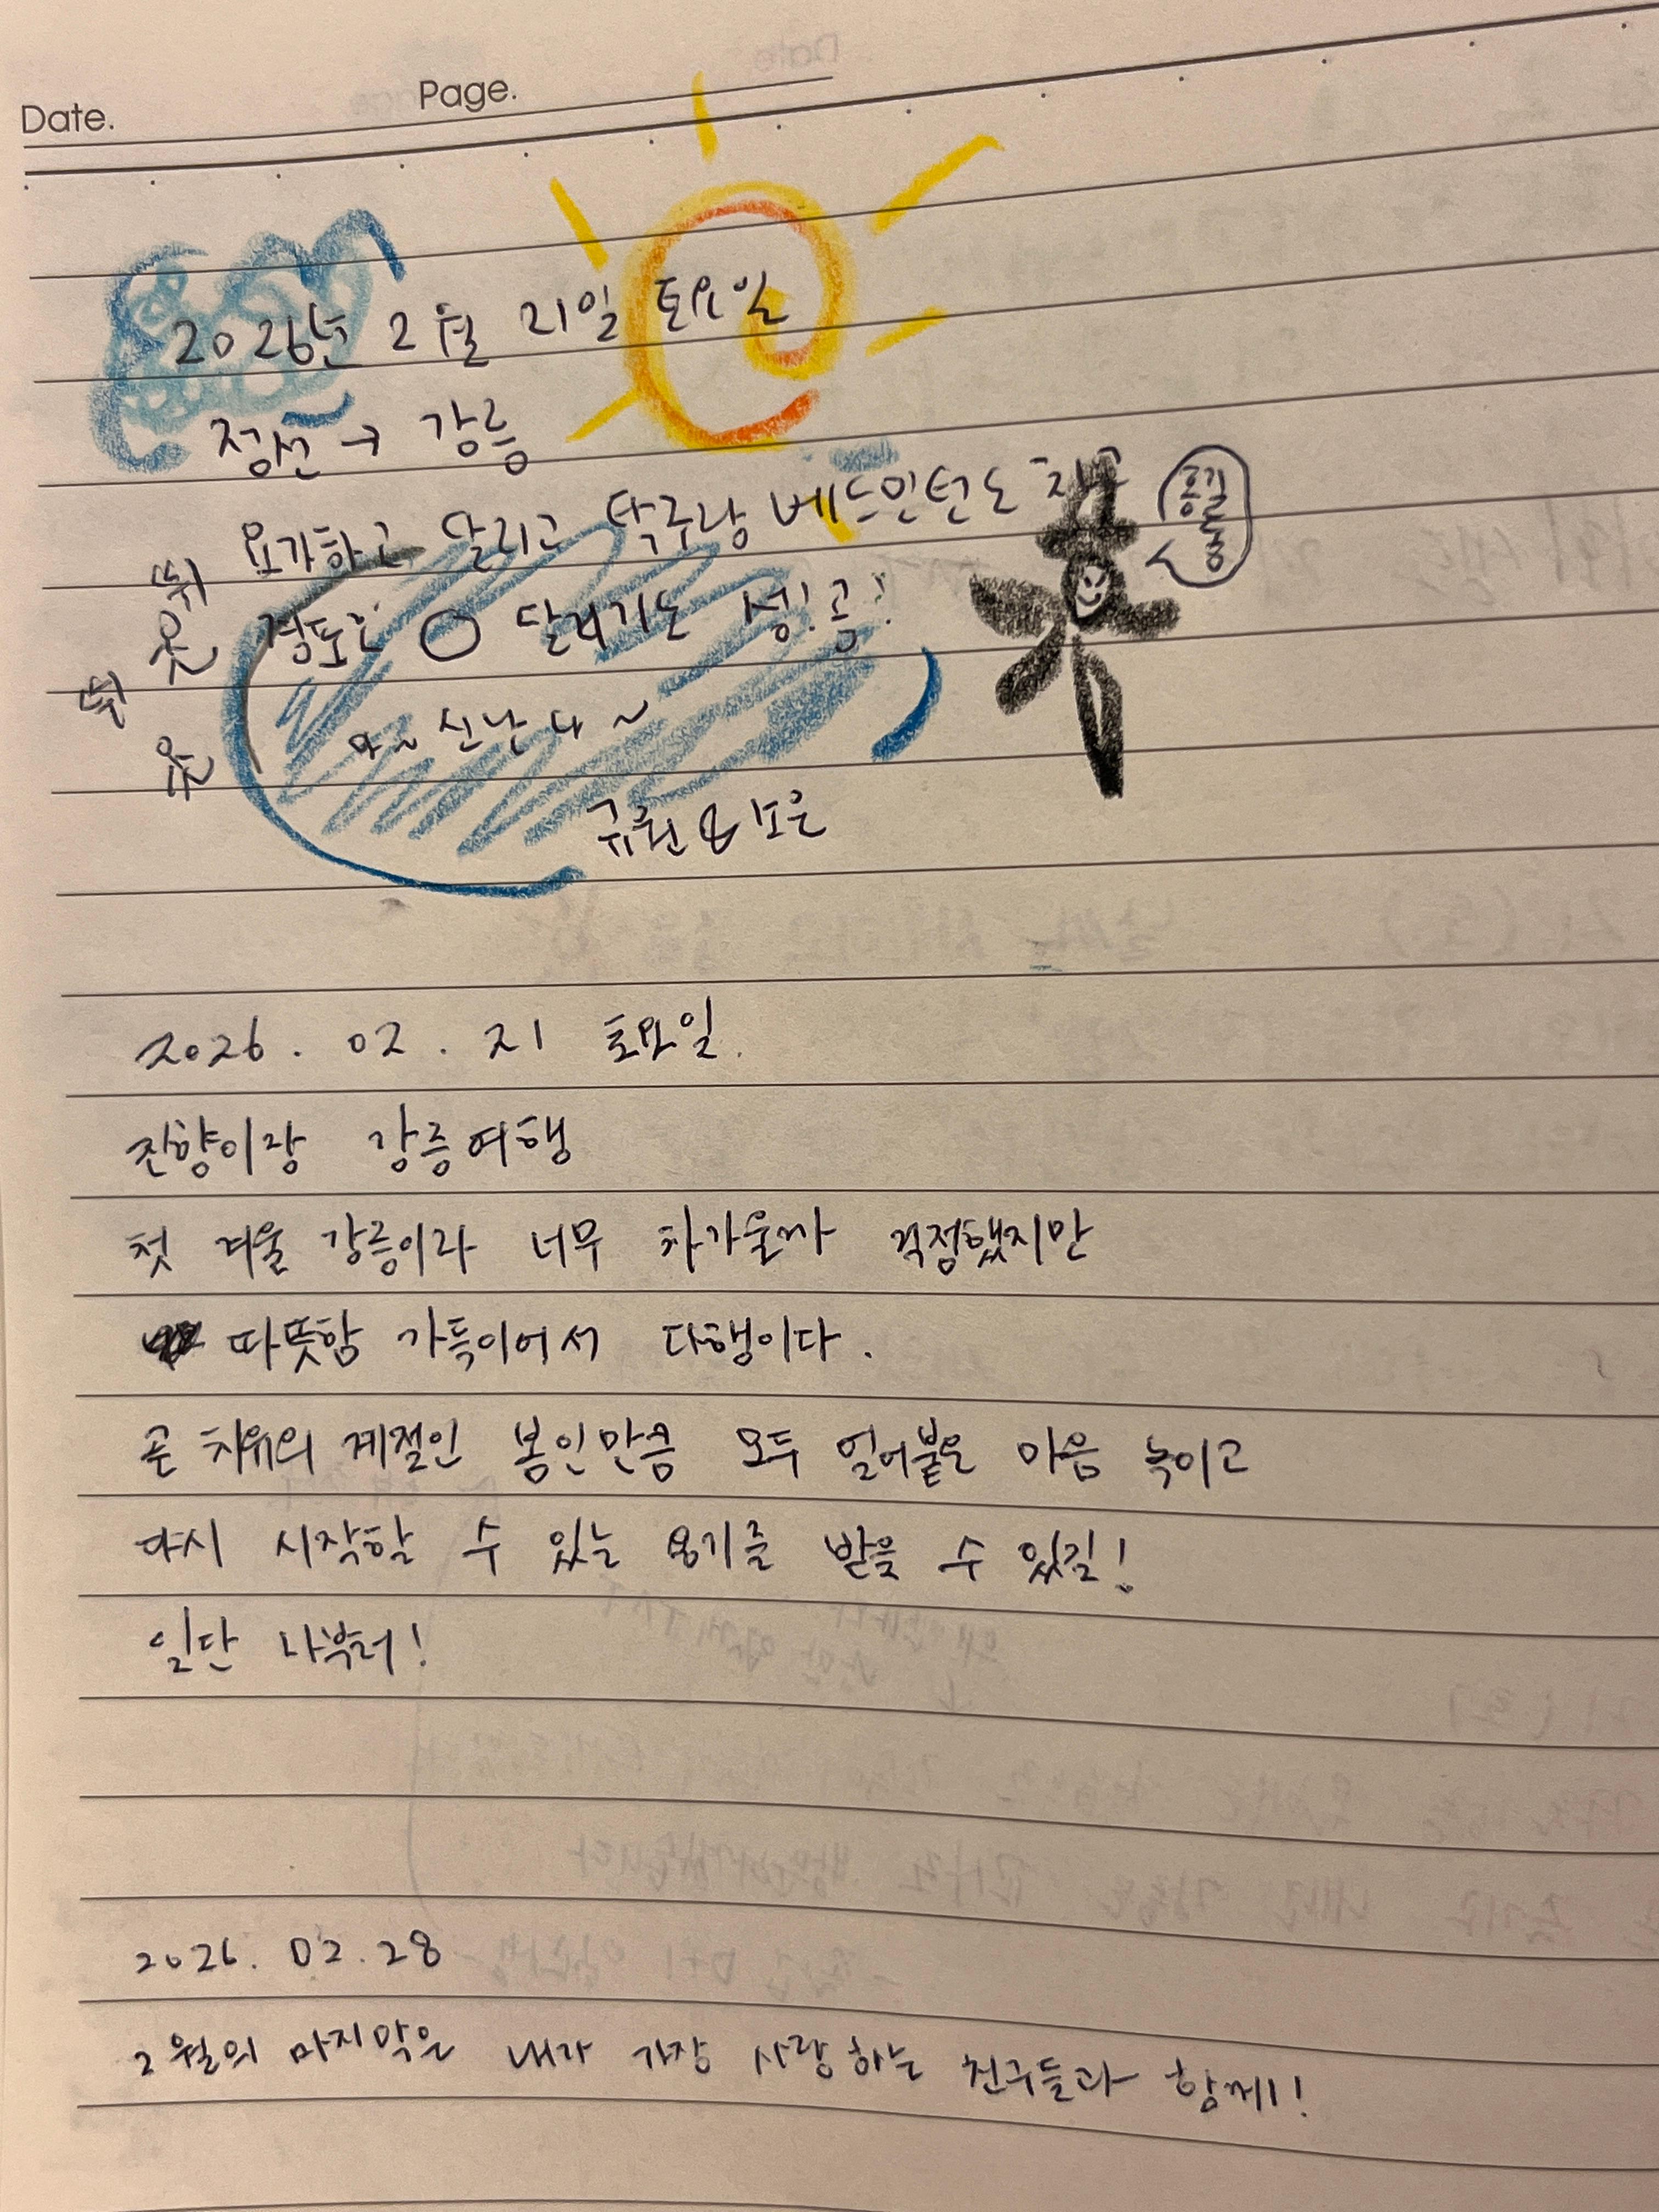 Date. Page.
2026년 2월 21일 토요일
정선 → 강릉
요가하고 달리고 탁구랑 베드민턴도 치고
경포호 ○ 달리기도 성!공!
와~ 신난다~
규원 & 보은
휘
웃
휘
웃
2026. 02. 21 토요일.
진향이랑 강릉여행
첫 겨울 강릉이라 너무 차가울까 걱정했지만
따뜻함 가득이어서 다행이다.
곧 치유의 계절인 봄인만큼 모두 얼어붙은 마음 녹이고
다시 시작할 수 있는 용기를 받을 수 있길!
일단 나부터!
2026. 02. 28
2월의 마지막은 내가 가장 사랑하는 친구들과 함께!